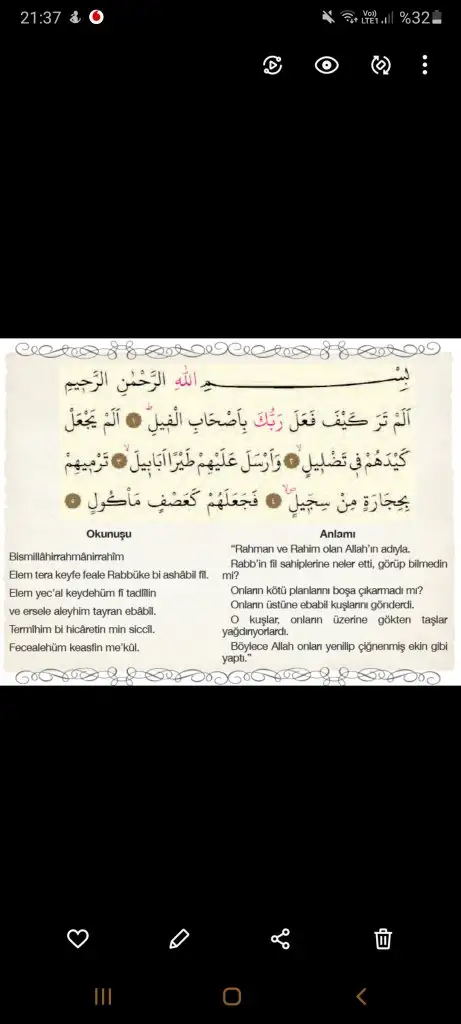 21:37
Vo)) LTE1 %32
بِسْــــــــمِ اللهِ الرَّحْمٰنِ الرَّحٖيمِ
اَلَمْ تَرَ كَيْفَ فَعَلَ رَبُّكَ بِاَصْحَابِ الْفٖيلِؕ ﴿١﴾ اَلَمْ يَجْعَلْ
كَيْدَهُمْ فٖى تَضْلٖيلٍۙ ﴿٢﴾ وَاَرْسَلَ عَلَيْهِمْ طَيْرًا اَبَابٖيلَۙ ﴿٣﴾ تَرْمٖيهِمْ
بِحِجَارَةٍ مِنْ سِجّٖيلٍۖۙ ﴿٤﴾ فَجَعَلَهُمْ كَعَصْفٍ مَأْكُولٍ ﴿٥﴾
Okunuşu
Bismillâhirrahmânirrahîm
Elem tera keyfe feale Rabbüke bi ashâbil fîl.
Elem yec'al keydehüm fî tadlîlin
ve ersele aleyhim tayran ebâbîl.
Termîhim bi hicâretin min siccîl.
Fecealehüm keasfin me'kûl.
Anlamı
"Rahman ve Rahim olan Allah'ın adıyla.
Rabb'in fil sahiplerine neler etti, görüp bilmedin
mi?
Onların kötü planlarını boşa çıkarmadı mı?
Onların üstüne ebabil kuşlarını gönderdi.
O kuşlar, onların üzerine gökten taşlar
yağdırıyorlardı.
Böylece Allah onları yenilip çiğnenmiş ekin gibi
yaptı."